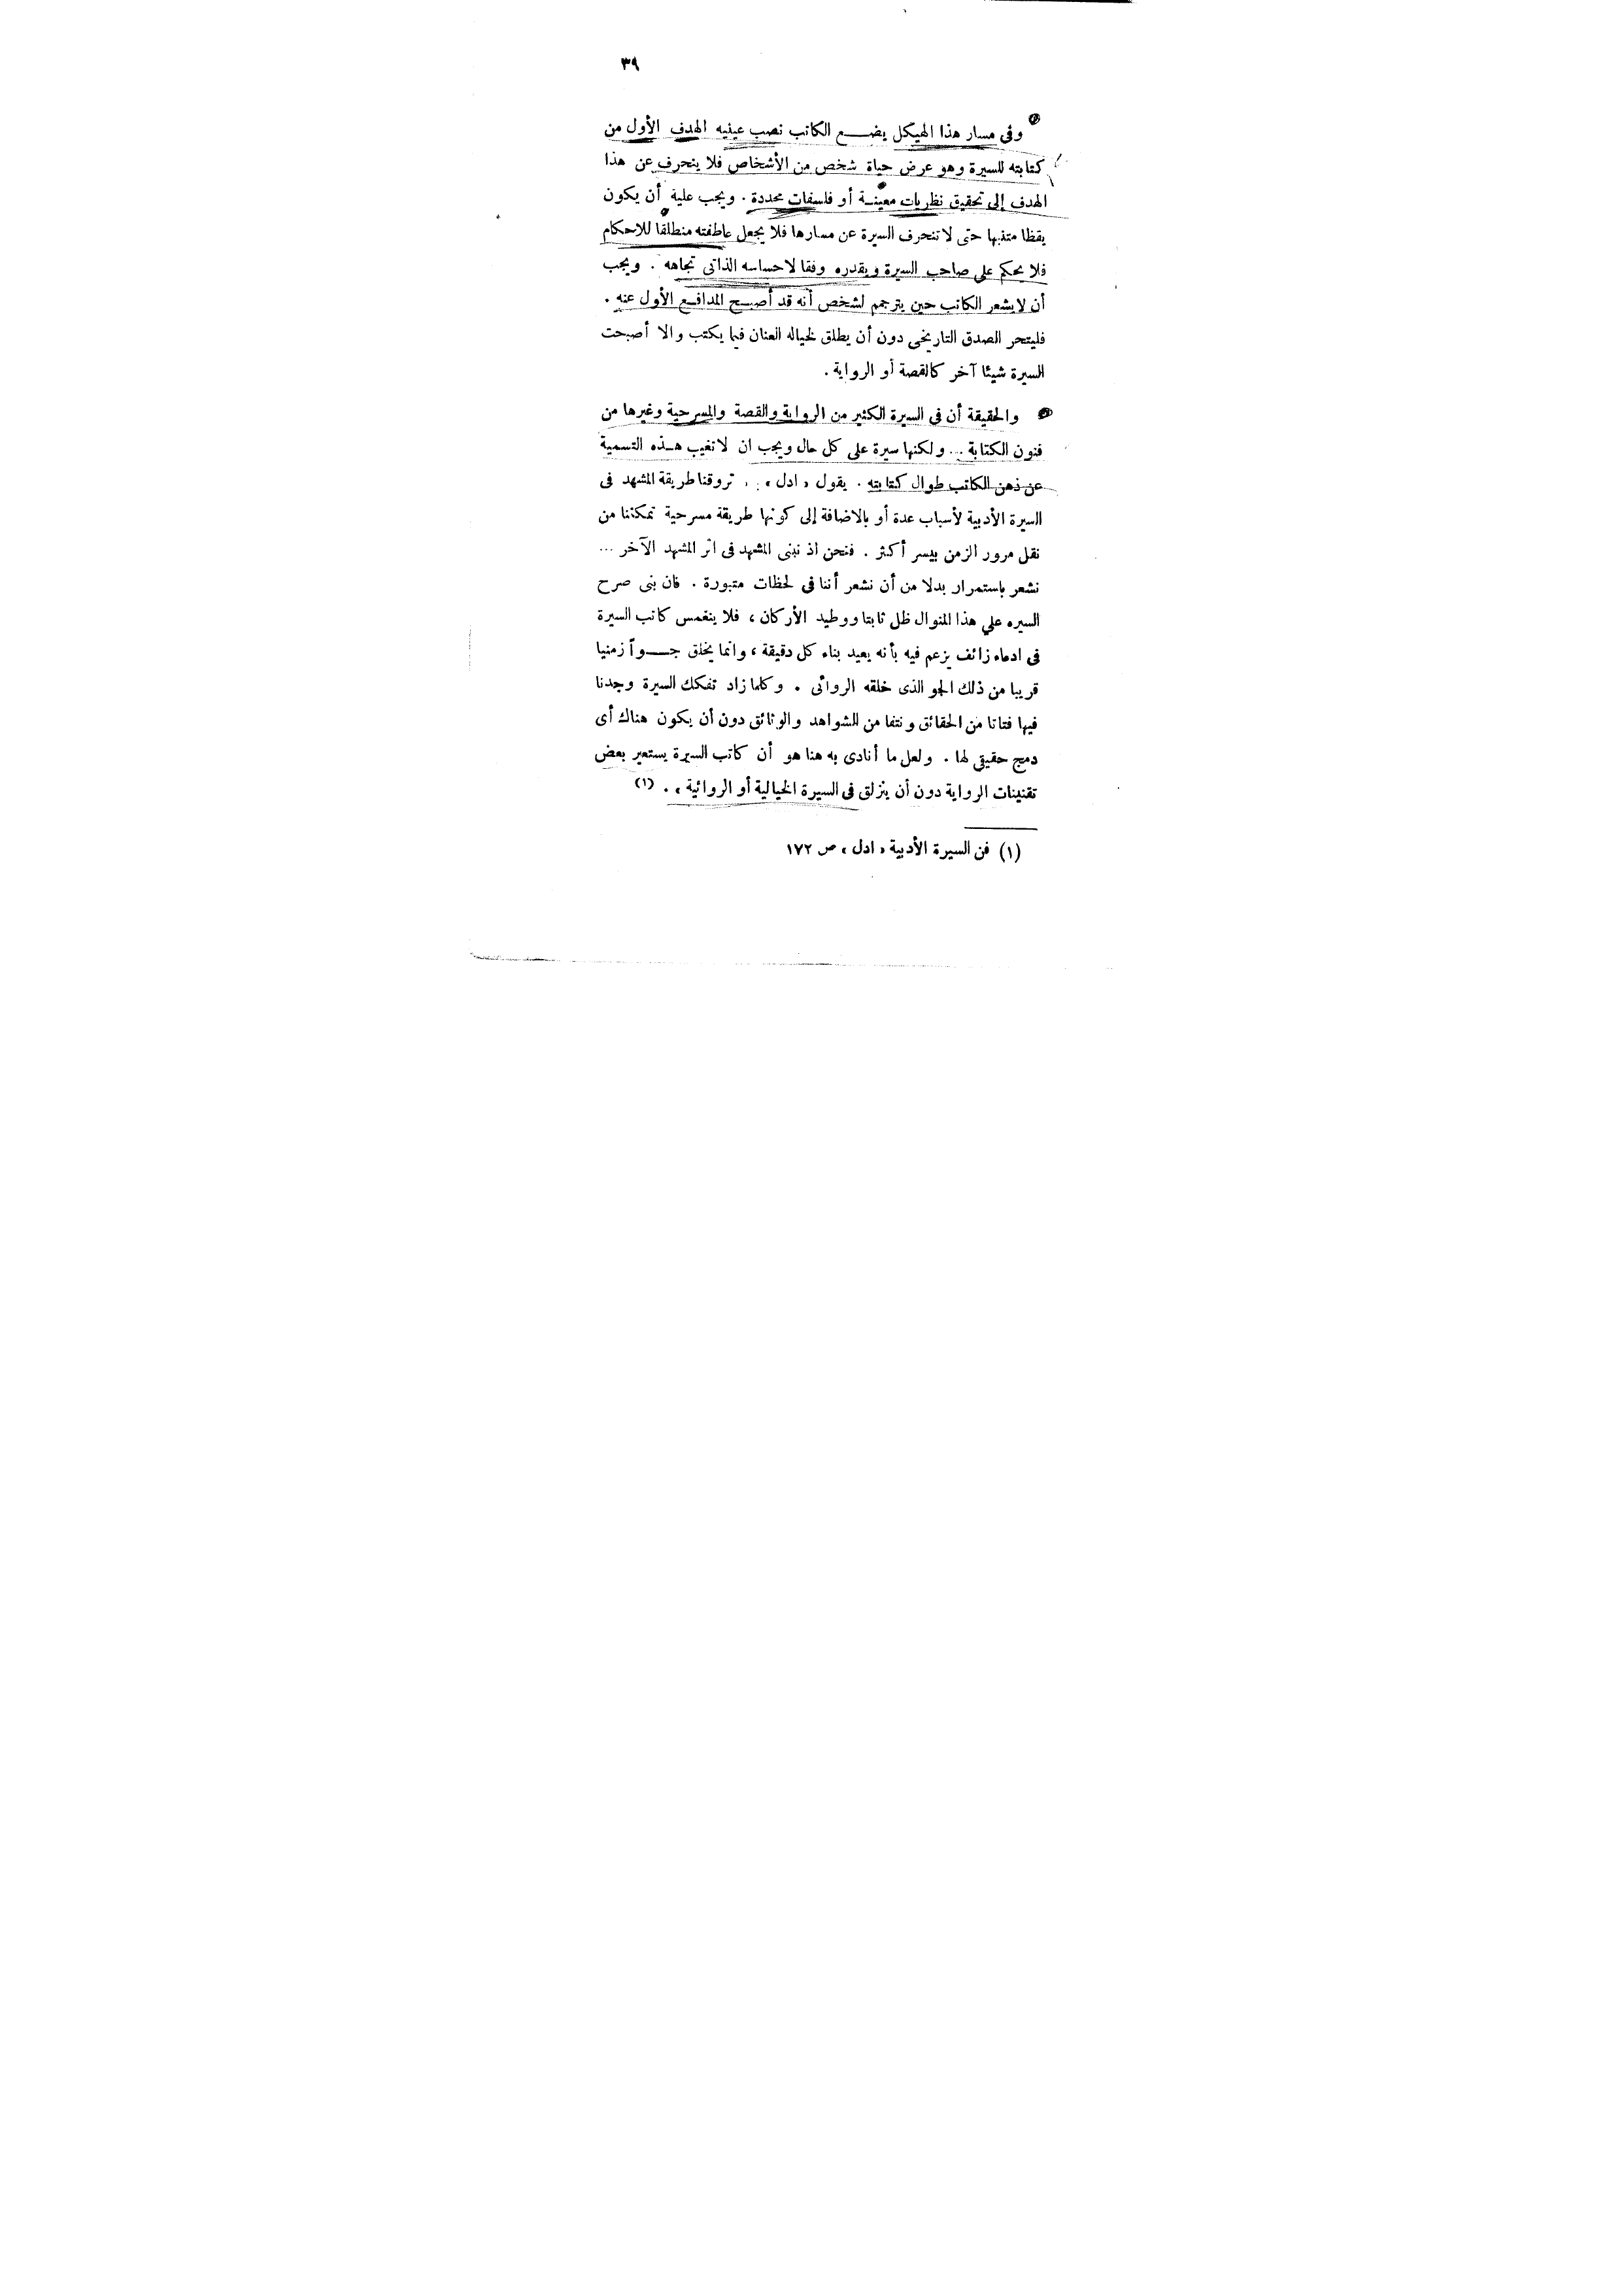 ٣٩
وفى مسار هذا الهيكل يضـــع الكاتب نصب عينيه الهدف الأول من
كتابته للسيرة وهو عرض حياة شخص من الأشخاص فلا ينحرف عن هذا
الهدف إلى تحقيق نظريات معينـة أو فلسفات محددة . ويجب عليه أن يكون
يقظا متنبها حتى لا تنحرف السيرة عن مسارها فلا يجعل عاطفته منطلقا للاحكام
فلا يحكم على صاحب السيرة ويقدره وفقا لاحساسه الذاتى تجاهه . ويجب
أن لا يشعر الكاتب حين يترجم لشخص أنه قد أصبـح المدافـع الأول عنه .
فليتحر الصدق التاريخى دون أن يطلق لخياله العنان فيما يكتب والا أصبحت
السيرة شيئا آخر كالقصة أو الرواية .
والحقيقة أن فى السيرة الكثير من الرواية والقصة والمسرحية وغيرها من
فنون الكتابة ... ولكنها سيرة على كل حال ويجب ان لا تغيب هـذه التسمية
عن ذهن الكاتب طوال كتابته . يقول « ادل » . تروقنا طريقة المشهد فى
السيرة الأدبية لأسباب عدة أو بالاضافة إلى كونها طريقة مسرحية تمكننا من
نقل مرور الزمن بيسر أكثر . فنحن اذ نبنى المشهد فى اثر المشهد الآخر ...
نشعر باستمرار بدلا من أن نشعر أننا فى لحظات مبتورة . فان بنى صرح
السيره على هذا المنوال ظل ثابتا ووطيد الأركان ، فلا ينغمس كاتب السيرة
فى ادعاء زائف يزعم فيه بأنه يعيد بناء كل دقيقة ، وانما يخلق جـــواً زمنيا
قريبا من ذلك الجو الذى خلقه الروائى . وكلما زاد تفكك السيرة وجدنا
فيها فتاتا من الحقائق ونتفا من الشواهد والوثائق دون أن يكون هناك أى
دمج حقيقى لها . ولعل ما أنادى به هنا هو أن كاتب السيرة يستعير بعض
تقنينات الرواية دون أن ينزلق فى السيرة الخيالية أو الروائية » . (١)
(١) فن السيرة الأدبية « ادل » ص ١٧٢